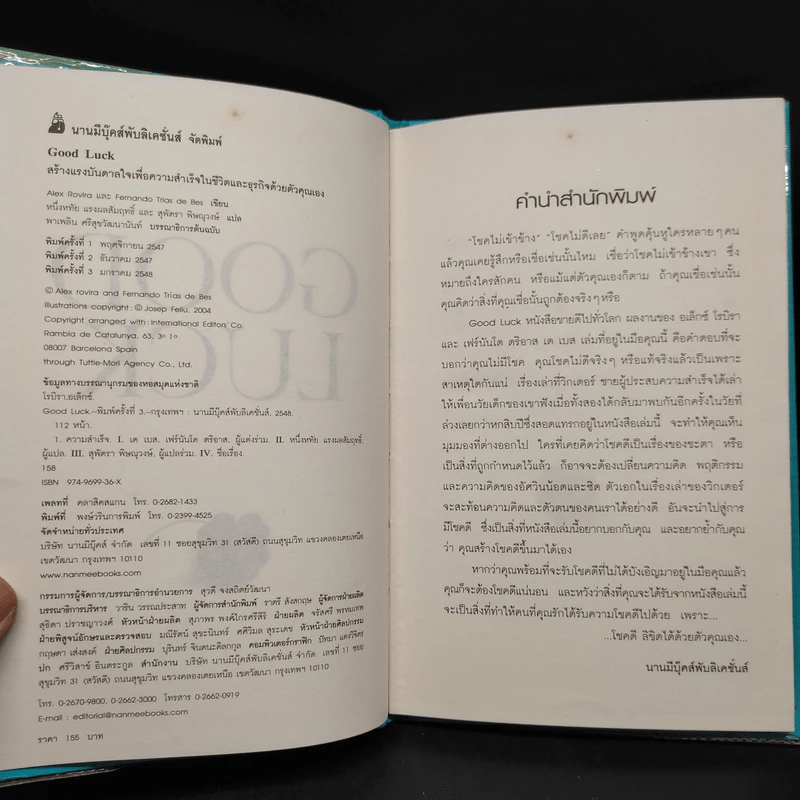 นานมีบุ๊คส์พับลิเคชั่นส์ จัดพิมพ์
Good Luck
สร้างแรงบันดาลใจเพื่อความสำเร็จในชีวิตและธุรกิจด้วยตัวคุณเอง
Alex Rovira และ Fernando Trias de Bes เขียน
หนึ่งหทัย แรงผลสัมฤทธิ์ และ สุพัตรา พิษณุวงษ์ แปล
พาเพลิน ศรีสุขวัฒนานันท์ บรรณาธิการต้นฉบับ
พิมพ์ครั้งที่ 1 พฤศจิกายน 2547
พิมพ์ครั้งที่ 2 ธันวาคม 2547
พิมพ์ครั้งที่ 3 มกราคม 2548
© Alex rovira and Fernando Trias de Bes
Illustrations copyright : © Josep Feliu, 2004
Copyright arranged with : International Editors' Co.
Rambla de Catalunya, 63, 3º 1º
08007 Barcelona Spain
through Tuttle-Mori Agency Co., Ltd.
ข้อมูลทางบรรณานุกรมของหอสมุดแห่งชาติ
โรบิรา,อเล็กซ์.
Good Luck.--พิมพ์ครั้งที่ 3.--กรุงเทพฯ : นานมีบุ๊คส์พับลิเคชั่นส์, 2548.
112 หน้า.
1. ความสำเร็จ. I. เด เบส, เฟร์นันโด ตริอาส, ผู้แต่งร่วม. II. หนึ่งหทัย แรงผลสัมฤทธิ์,
ผู้แปล. III. สุพัตรา พิษณุวงษ์, ผู้แปลร่วม. IV. ชื่อเรื่อง.
158
ISBN 974-9699-36-X
เพลทที่ คลาสิคสแกน โทร. 0-2682-1433
พิมพ์ที่ พงษ์วรินการพิมพ์ โทร. 0-2399-4525
จัดจำหน่ายทั่วประเทศ
บริษัท นานมีบุ๊คส์ จำกัด เลขที่ 11 ซอยสุขุมวิท 31 (สวัสดี) ถนนสุขุมวิท แขวงคลองเตยเหนือ
เขตวัฒนา กรุงเทพฯ 10110
www.nanmeebooks.com
กรรมการผู้จัดการ/บรรณาธิการอำนวยการ สุวดี จงสถิตย์วัฒนา
บรรณาธิการบริหาร วาริน วรรณประสาท ผู้จัดการสำนักพิมพ์ ราตรี สังสกฤษ ผู้จัดการฝ่ายผลิต
สุธิดา ปราชญาวงค์ หัวหน้าฝ่ายผลิต สุภาพร พงค์ไกรศรีสิริ ฝ่ายผลิต จรัสศรี พรหมเทพ
ฝ่ายพิสูจน์อักษรและตรวจสอบ มณีรัตน์ สุขะนินทร์ ศศิวิมล สุระเดช หัวหน้าฝ่ายศิลปกรรม
กฤษดา เส่งสงค์ ฝ่ายศิลปกรรม บุรินทร์ จินตนะดิลกกุล คอมพิวเตอร์กราฟิก ปัทมา แดงวิจิตร
ปก ศรีวิสาข์ อินตระกูล สำนักงาน บริษัท นานมีบุ๊คส์พับลิเคชั่นส์ จำกัด เลขที่ 11 ซอย
สุขุมวิท 31 (สวัสดี) ถนนสุขุมวิท แขวงคลองเตยเหนือ เขตวัฒนา กรุงเทพฯ 10110
โทร. 0-2670-9800, 0-2662-3000 โทรสาร 0-2662-0919
E-mail : editorial@nanmeebooks.com
ราคา 155 บาท
คำนำสำนักพิมพ์
"โชคไม่เข้าข้าง" "โชคไม่ดีเลย" คำพูดคุ้นหูใครหลายๆ คน
แล้วคุณเคยรู้สึกหรือเชื่อเช่นนั้นไหม เชื่อว่าโชคไม่เข้าข้างเขา ซึ่ง
หมายถึงใครสักคน หรือแม้แต่ตัวคุณเองก็ตาม ถ้าคุณเชื่อเช่นนั้น
คุณคิดว่าสิ่งที่คุณเชื่อนั้นถูกต้องจริงๆ หรือ
Good Luck หนังสือขายดีไปทั่วโลก ผลงานของ อเล็กซ์ โรบิรา
และ เฟร์นันโด ตริอาส เด เบส เล่มที่อยู่ในมือคุณนี้ คือคำตอบที่จะ
บอกว่าคุณไม่มีโชค คุณโชคไม่ดีจริงๆ หรือแท้จริงแล้วเป็นเพราะ
สาเหตุใดกันแน่ เรื่องเล่าที่วิกเตอร์ ชายผู้ประสบความสำเร็จได้เล่า
ให้เพื่อนวัยเด็กของเขาฟังเมื่อทั้งสองได้กลับมาพบกันอีกครั้งในวัยที่
ล่วงเลยกว่าหกสิบปีซึ่งสอดแทรกอยู่ในหนังสือเล่มนี้ จะทำให้คุณเห็น
มุมมองที่ต่างออกไป ใครที่เคยคิดว่าโชคดีเป็นเรื่องของชะตา หรือ
เป็นสิ่งที่ถูกกำหนดไว้แล้ว ก็อาจจะต้องเปลี่ยนความคิด พฤติกรรม
และความคิดของอัศวินน็อตและซิด ตัวเอกในเรื่องเล่าของวิกเตอร์
จะสะท้อนความคิดและตัวตนของคนเราได้อย่างดี อันจะนำไปสู่การ
มีโชคดี ซึ่งเป็นสิ่งที่หนังสือเล่มนี้อยากบอกกับคุณ และอยากย้ำกับคุณ
ว่า คุณสร้างโชคดีขึ้นมาได้เอง
หากว่าคุณพร้อมที่จะรับโชคดีที่ไม่ได้บังเอิญมาอยู่ในมือคุณแล้ว
คุณก็จะต้องโชคดีแน่นอน และหวังว่าสิ่งที่คุณจะได้รับจากหนังสือเล่มนี้
จะเป็นสิ่งที่ทำให้คนที่คุณรักได้รับความโชคดีไปด้วย เพราะ...
...โชคดี ลิขิตได้ด้วยตัวคุณเอง...
นานมีบุ๊คส์พับลิเคชั่นส์